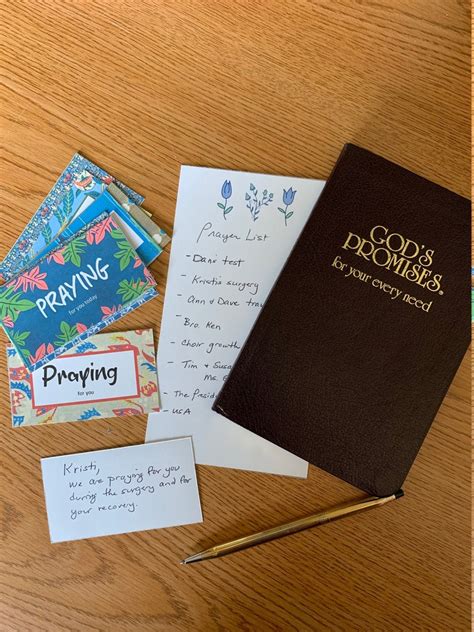 PRAYING
for you today
Praying
for you
Kristi,
we are praying for you
during the surgery and for
your recovery.
Prayer List
- Dan's test
- Kristi's surgery
- Ann & Dave
- Bro. Ken
- Choir growth
- Tim &
- The
- USA
GOD'S
PROMISES®
for your every need